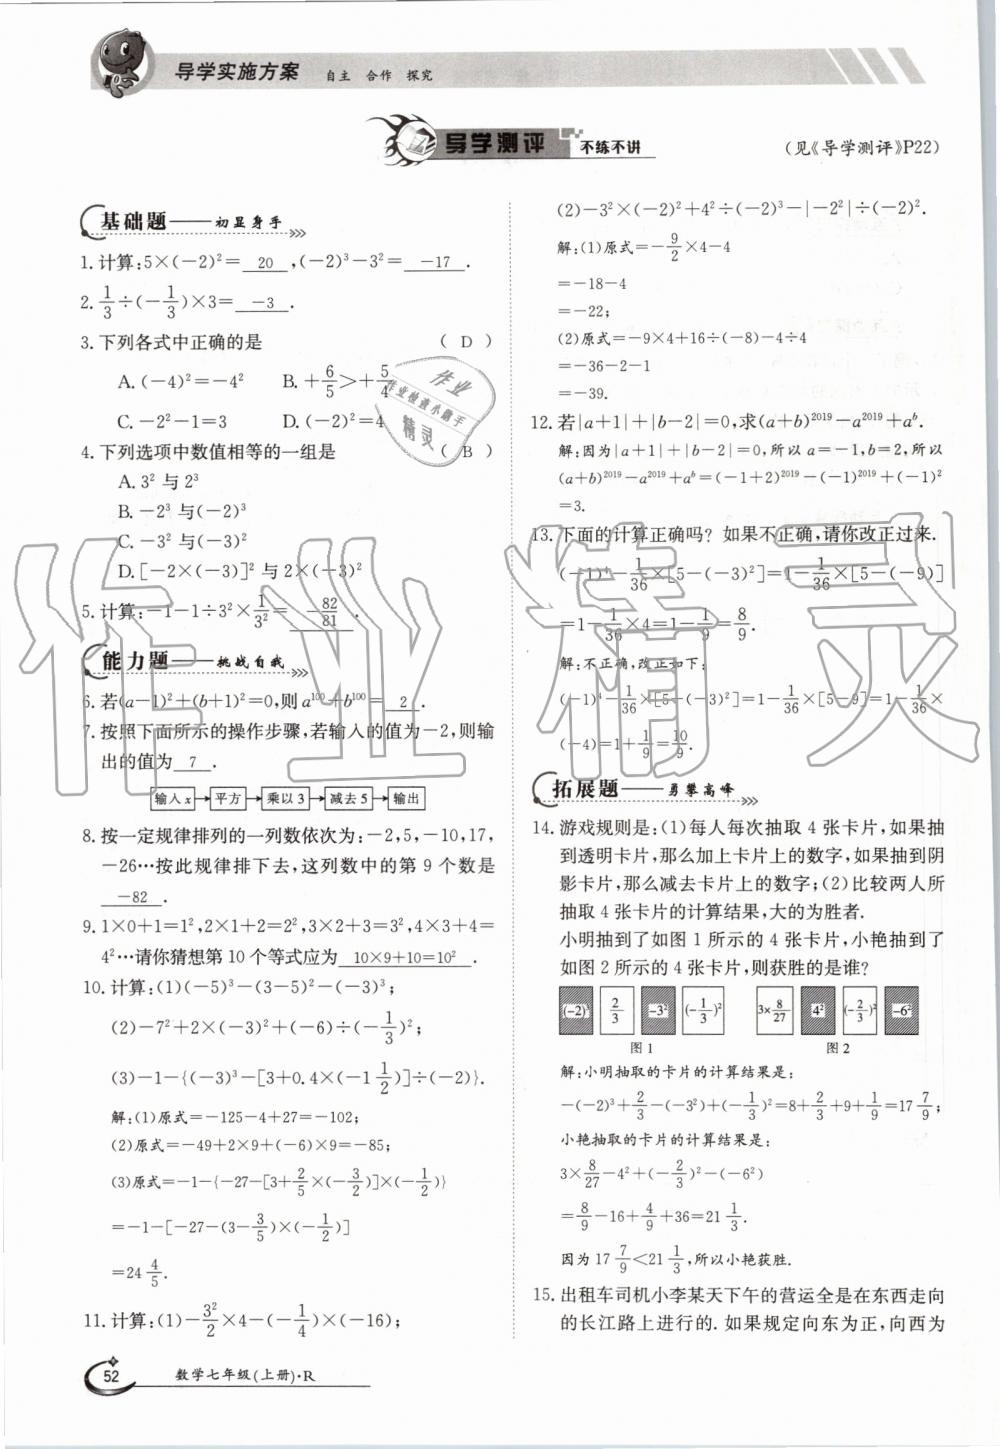 导学实施方案 自主 合作 探究
导学测评 不练不讲
(见《导学测评》P22)
基础题——初显身手
1.计算:5×(-2)²= 20 ,(-2)³-3²= -17 .
2. 1/3÷(-1/3)×3= -3 .
3.下列各式中正确的是 ( D )
A.(-4)²=-4² B.+6/5>+5/4
C.-2²-1=3 D.(-2)²=4
4.下列选项中数值相等的一组是 ( B )
A.3² 与 2³
B.-2³ 与(-2)³
C.-3² 与(-3)²
D.[-2×(-3)]² 与 2×(-3)²
5.计算:-1-1÷3²×1/3²= -82/81 .
能力题——挑战自我
6.若(a-1)²+(b+1)²=0,则 a¹⁰⁰+b¹⁰⁰= 2 .
7.按照下面所示的操作步骤,若输入的值为-2,则输
出的值为 7 .
输入x→平方→乘以3→减去5→输出
8.按一定规律排列的一列数依次为:-2,5,-10,17,
-26…按此规律排下去,这列数中的第 9 个数是
-82 .
9.1×0+1=1²,2×1+2=2²,3×2+3=3²,4×3+4=
4²…请你猜想第 10 个等式应为 10×9+10=10² .
10.计算:(1)(-5)³-(3-5)²-(-3)³;
(2)-7²+2×(-3)²+(-6)÷(-1/3)²;
(3)-1-{(-3)³-[3+0.4×(-1 1/2)]÷(-2)}.
解:(1)原式=-125-4+27=-102;
(2)原式=-49+2×9+(-6)×9=-85;
(3)原式=-1-{-27-[3+2/5×(-3/2)]×(-1/2)}
=-1-[-27-(3-3/5)×(-1/2)]
=24 4/5.
11.计算:(1)-3²/2×4-(-1/4)×(-16);
52 数学七年级(上册)·R
(2)-3²×(-2)²+4²÷(-2)³-|-2²|÷(-2)².
解:(1)原式=-9/2×4-4
=-18-4
=-22;
(2)原式=-9×4+16÷(-8)-4÷4
=-36-2-1
=-39.
12.若|a+1|+|b-2|=0,求(a+b)²⁰¹⁹-a²⁰¹⁹+aᵇ.
解:因为|a+1|+|b-2|=0,所以 a=-1,b=2,所以
(a+b)²⁰¹⁹-a²⁰¹⁹+aᵇ=(-1+2)²⁰¹⁹-(-1)²⁰¹⁹+(-1)²
=3.
13.下面的计算正确吗? 如果不正确,请你改正过来.
(-1)⁴-1/36×[5-(-3)²]=1-1/36×[5-(-9)]
=1-1/36×4=1-1/9=8/9.
解:不正确,改正如下:
(-1)⁴-1/36×[5-(-3)²]=1-1/36×[5-9]=1-1/36×
(-4)=1+1/9=10/9.
拓展题——勇攀高峰
14.游戏规则是:(1)每人每次抽取 4 张卡片,如果抽
到透明卡片,那么加上卡片上的数字,如果抽到阴
影卡片,那么减去卡片上的数字;(2)比较两人所
抽取 4 张卡片的计算结果,大的为胜者.
小明抽到了如图 1 所示的 4 张卡片,小艳抽到了
如图 2 所示的 4 张卡片,则获胜的是谁?
(-2)³ 2/3 -3² (-1/3)² 3×8/27 4² (-2/3)² -6²
图 1 图 2
解:小明抽取的卡片的计算结果是:
-(-2)³+2/3-(-3²)+(-1/3)²=8+2/3+9+1/9=17 7/9;
小艳抽取的卡片的计算结果是:
3×8/27-4²+(-2/3)²-(-6²)
=8/9-16+4/9+36=21 1/3.
因为 17 7/9<21 1/3,所以小艳获胜.
15.出租车司机小李某天下午的营运全是在东西走向
的长江路上进行的.如果规定向东为正,向西为
作业精灵
作业
作业检查小助手
精灵